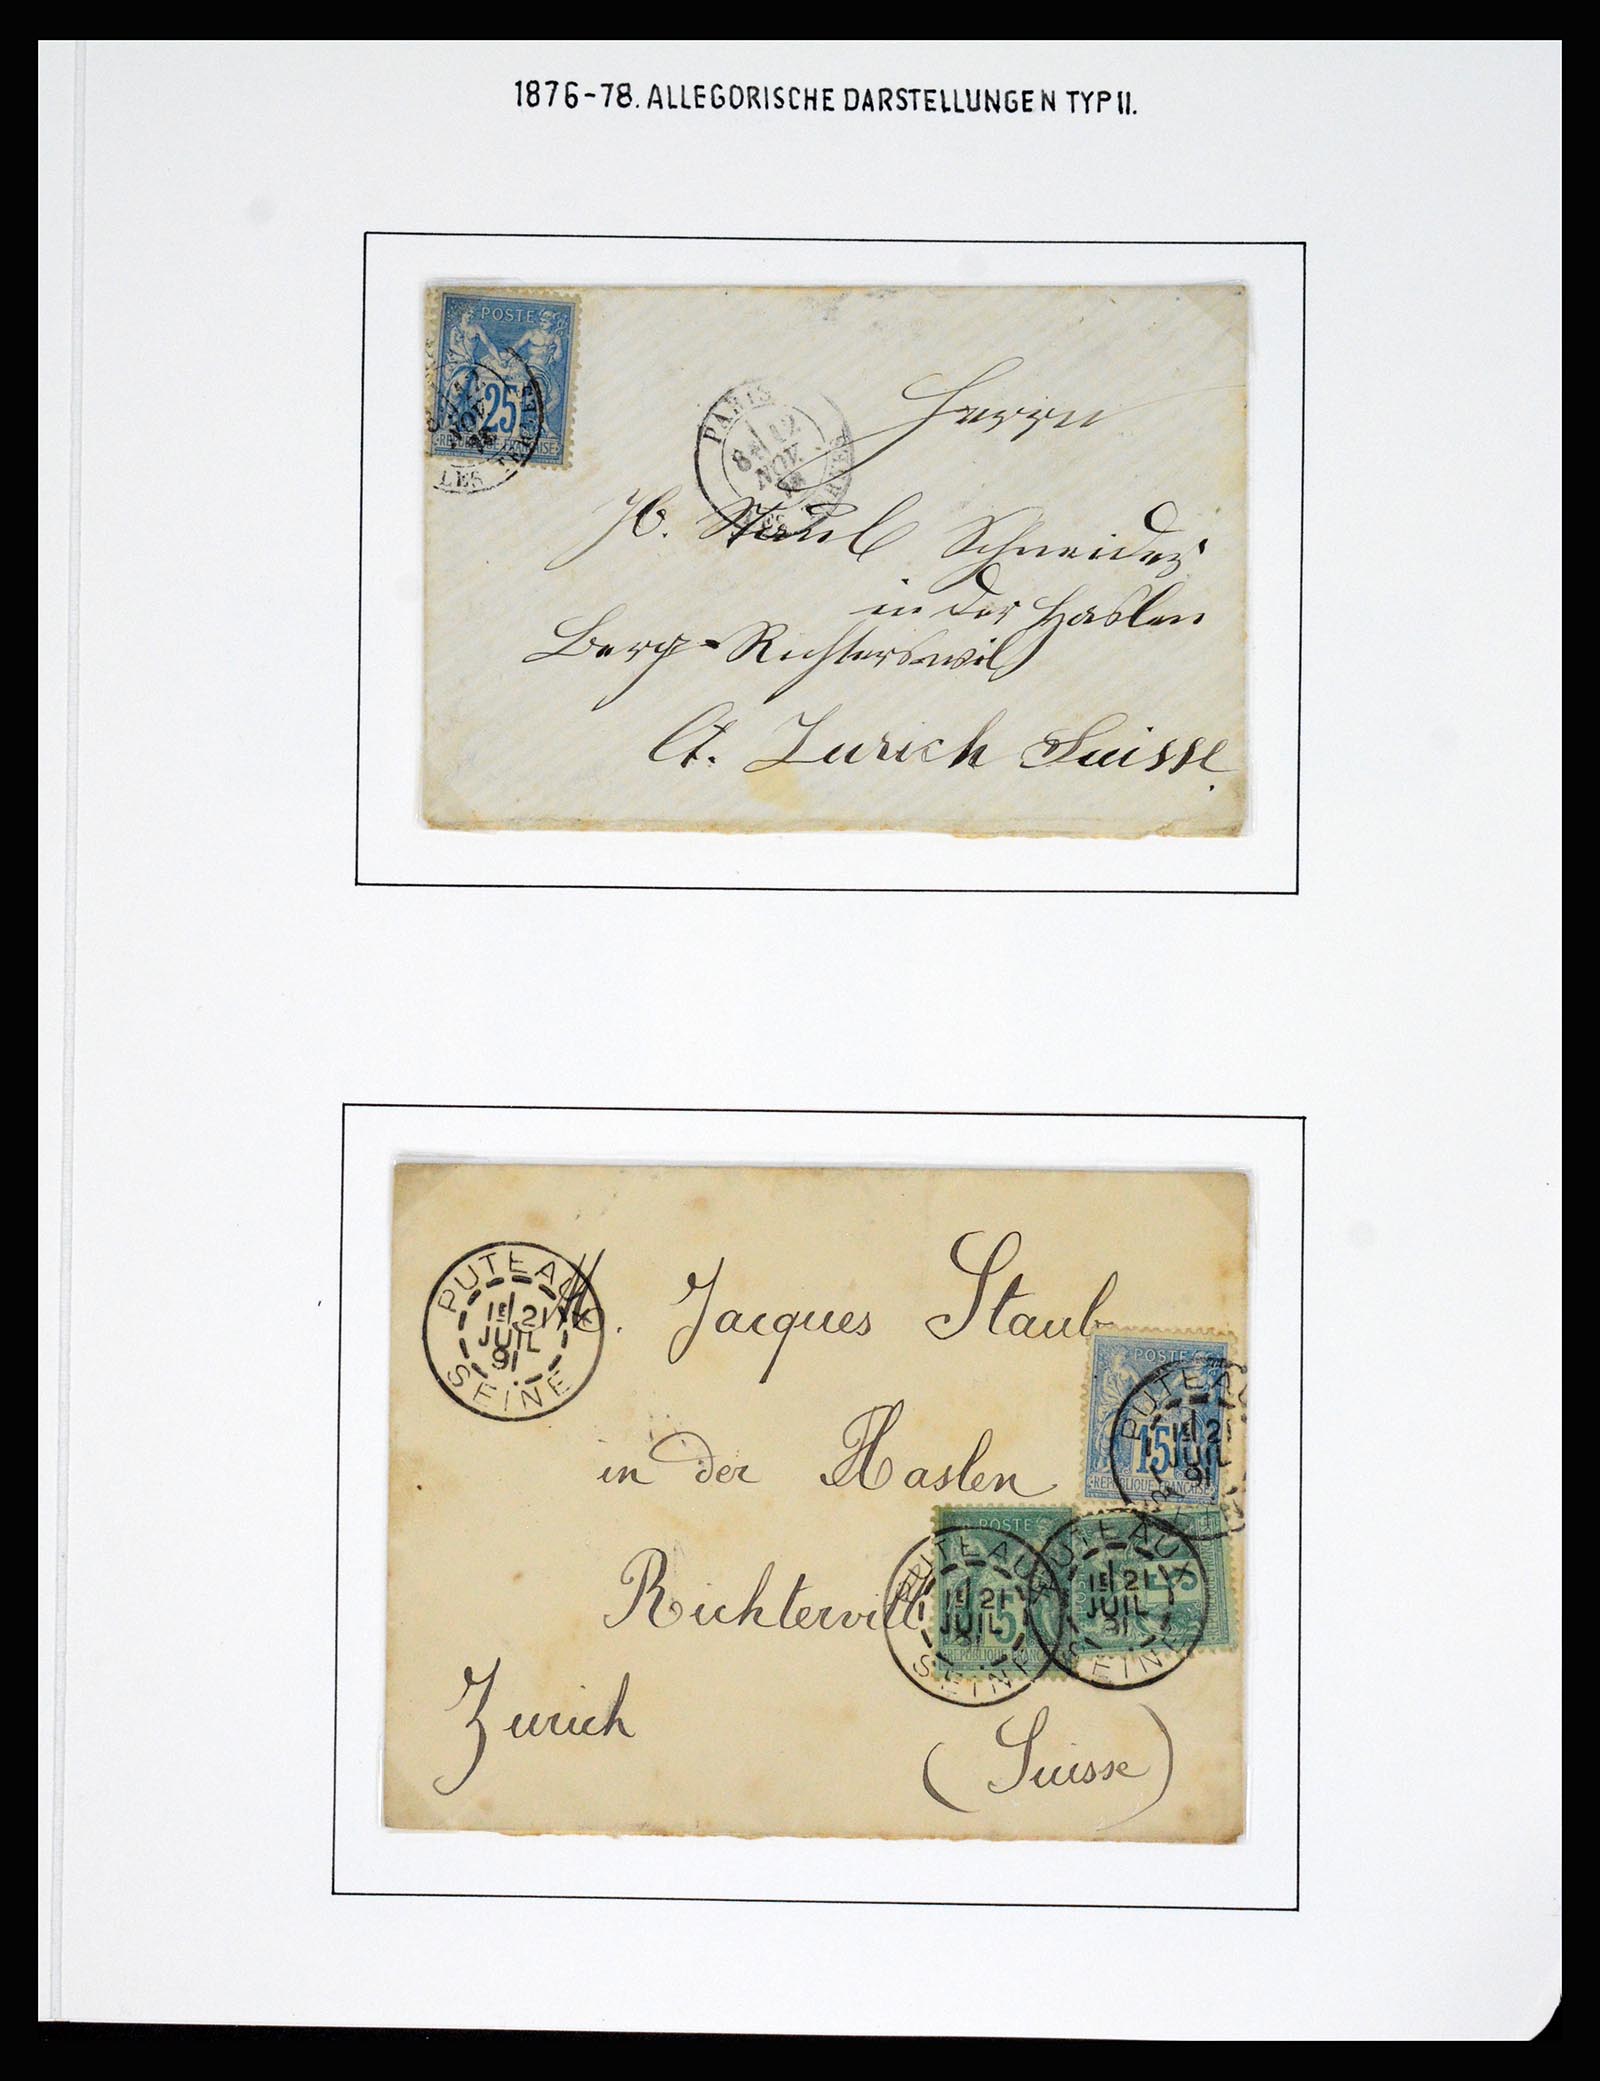 1876-78. ALLEGORISCHE DARSTELLUNGEN TYP II.
POSTE
25
REPUBLIQUE FRANÇAISE
NOV
LES TERNES
PARIS
8E 12
NOV.
Herrn
Jb. Staub Schneider
in der Haslen
Berg-Richterswil
Ct. Zurich Suisse.
PUTEAUX
1E 21
JUIL
91
SEINE
M. Jacques Staub
POSTE
15
REPUBLIQUE FRANÇAISE
PUTEAUX
1E 21
JUIL
91
in der Haslen
POSTE
5
REPUBLIQUE FRANÇAISE
PUTEAUX
1E 21
JUIL
91
SEINE
PUTEAUX
1E 21
JUIL
91
SEINE
Richtervill
Zurich
(Suisse)